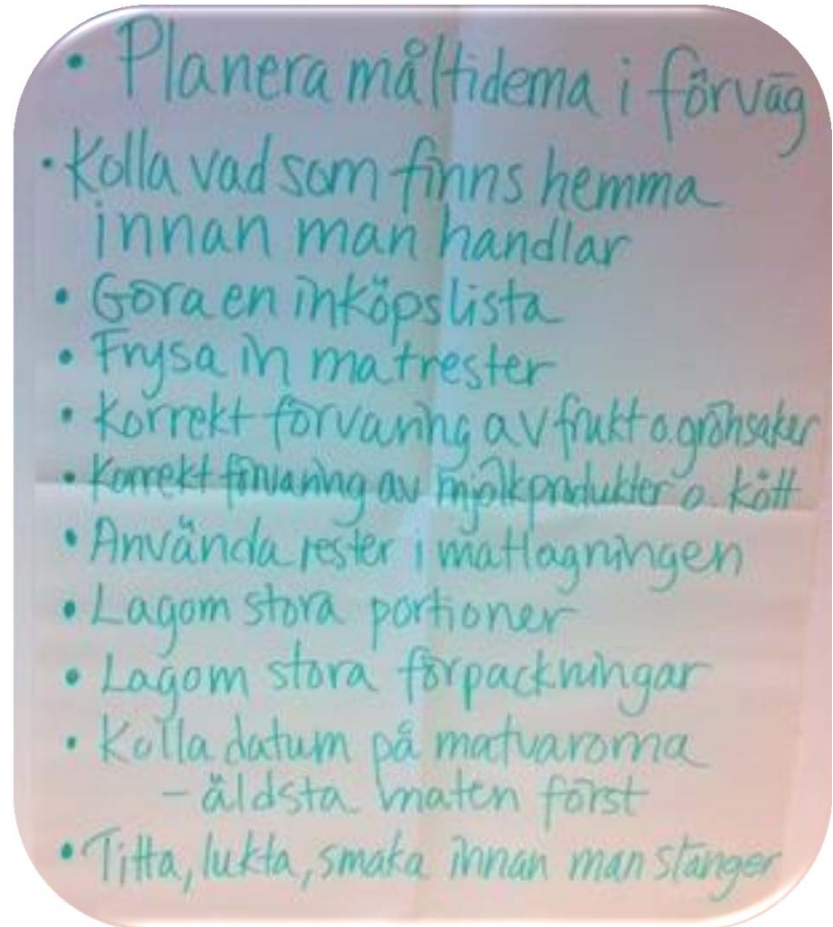 • Planera måltiderna i förväg
• Kolla vad som finns hemma
innan man handlar
• Göra en inköpslista
• Frysa in matrester
• Korrekt förvaring av frukt o. grönsaker
• Korrekt förvaring av mjölkprodukter o. kött
• Använda rester i matlagningen
• Lagom stora portioner
• Lagom stora förpackningar
• Kolla datum på matvarorna
- äldsta maten först
• Titta, lukta, smaka innan man slänger